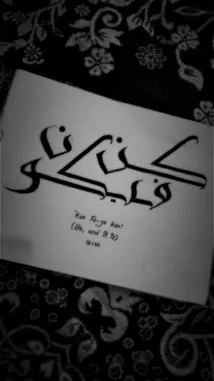 كن
فيكون
"Kun Faya kun"
(Be, and It Is)